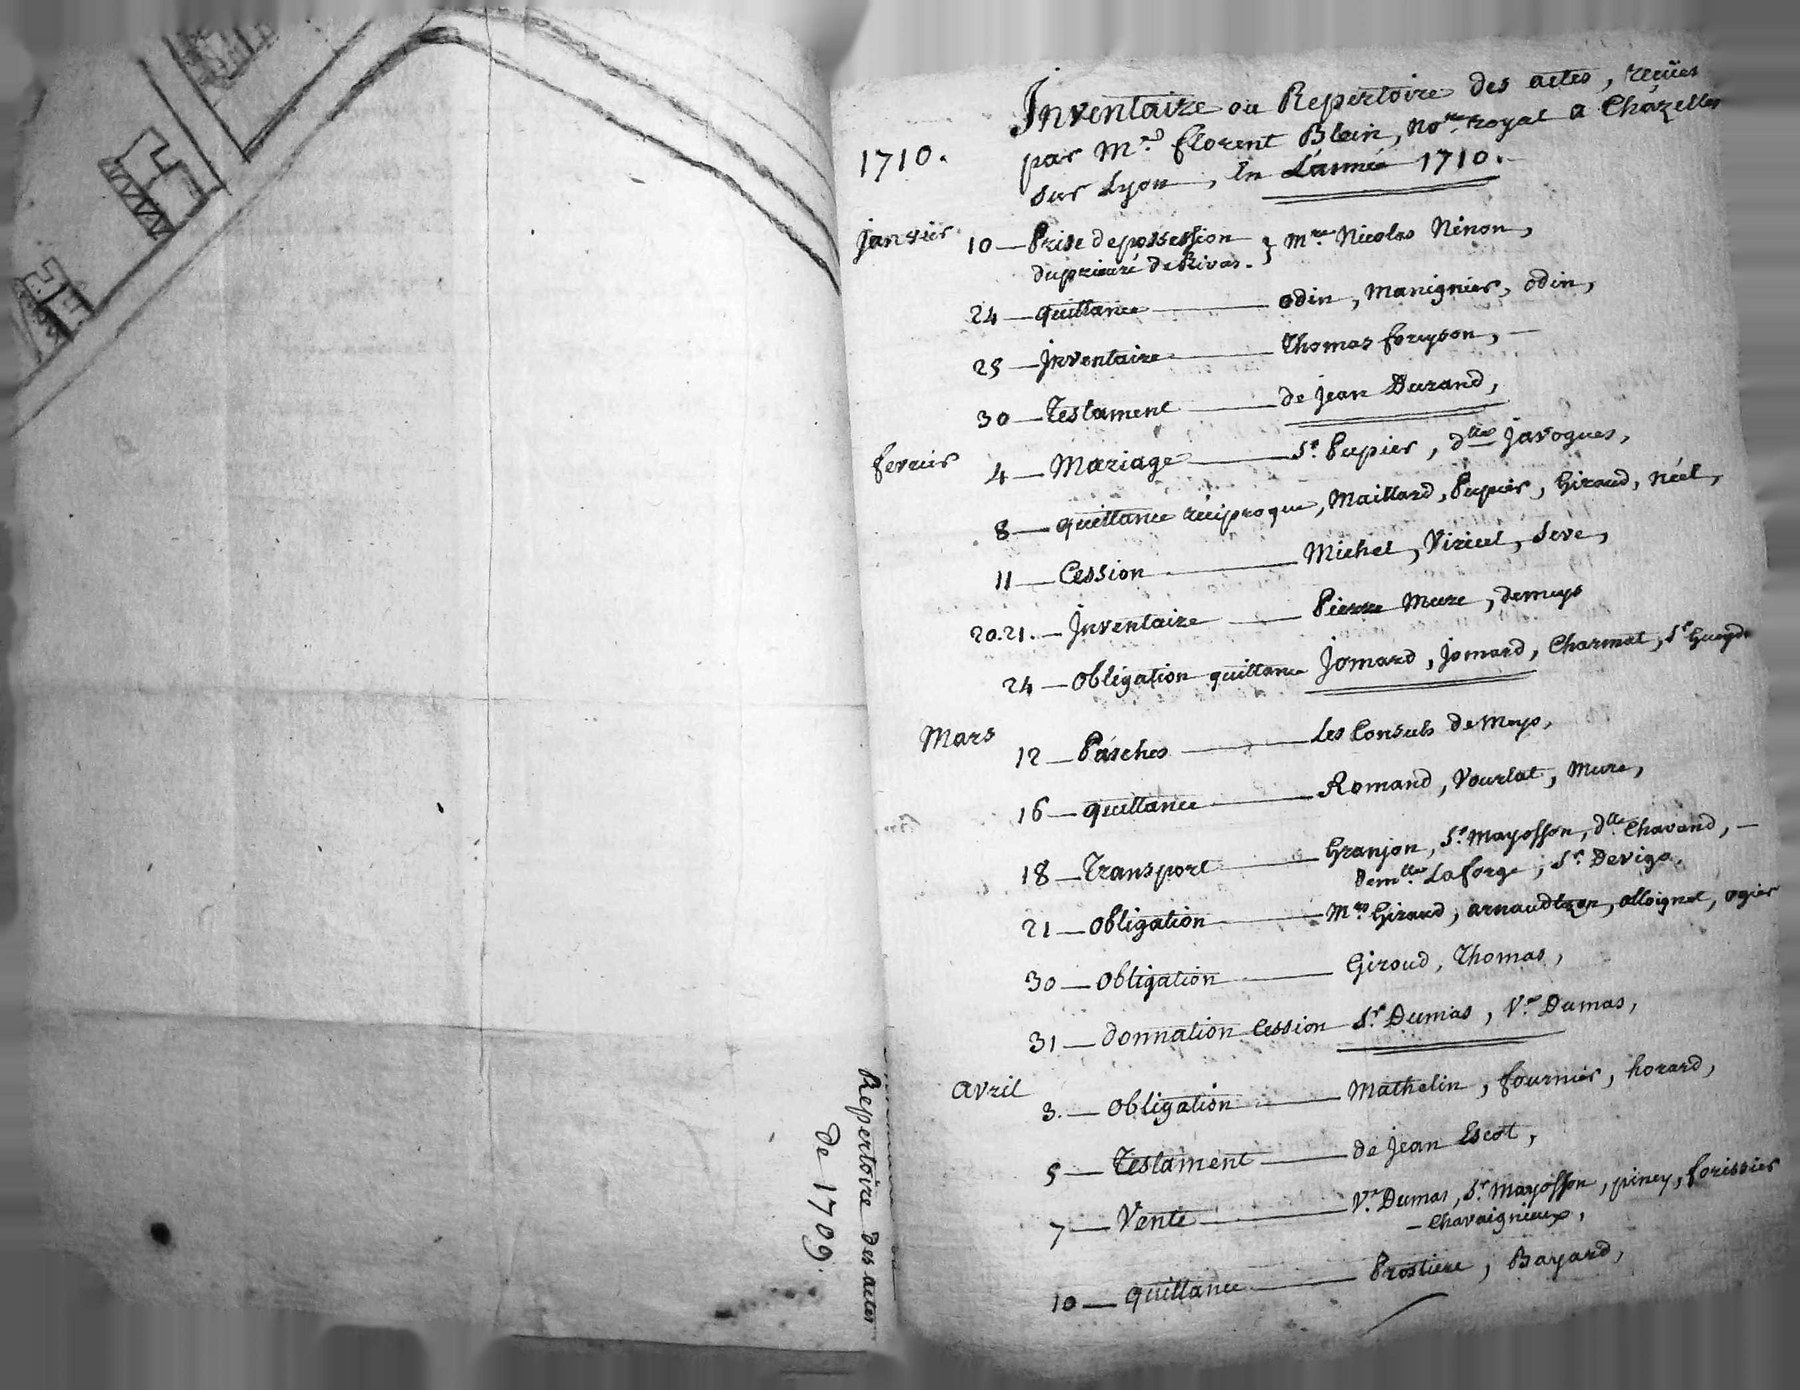 Repertoire des actes
De 1709.
Inventaire ou Repertoire des actes, reçües
1710.
par Mre. florent Blein, Nore. royal a Chazelles
sur Lyon, En L'année 1710.
janvier 10 — Prise depossession } Mre. Nicolas Ninon,
duprieuré de Rivas.
24 — quittance — odin, Manignier, odin,
25 — Inventaire — Thomas
30 — Testament — de jean Durand,
fevrier 4 — Mariage — Sr. Pupier, dlle Javogues,
8 — quittance réciproque, Maillard, Pupier, Giraud, Néel,
11 — Cession — Michel, Viricel, Seve,
20.21. — Inventaire — Pierre Mure, demeys
24 — obligation quittance Jomard, jomard, Charmet, Sr
Mars 12 — Pasches — Les Consuls de Meys,
16 — quittance — Romand, Vourlat, Mure,
18 — Transport — Granjon, Sr. Mayosson, dlle. Chavand, —
Demlle. Laforge, Sr. Devigo.
21 — obligation — Mrs. Giraud, arnaudtizon, alloignet, ogier
30 — obligation — Giroud, Thomas,
31 — donnation Cession Sr. Dumas, Ve. Dumas,
avril 3. — obligation — Mathelin, fournier, horard,
5 — Testament — de jean Escot,
7 — Vente — Ve. Dumas, Sr. Mayosson, piney, forissier
— Chavaignieux,
10 — quittance — Prostiere, Bayard,